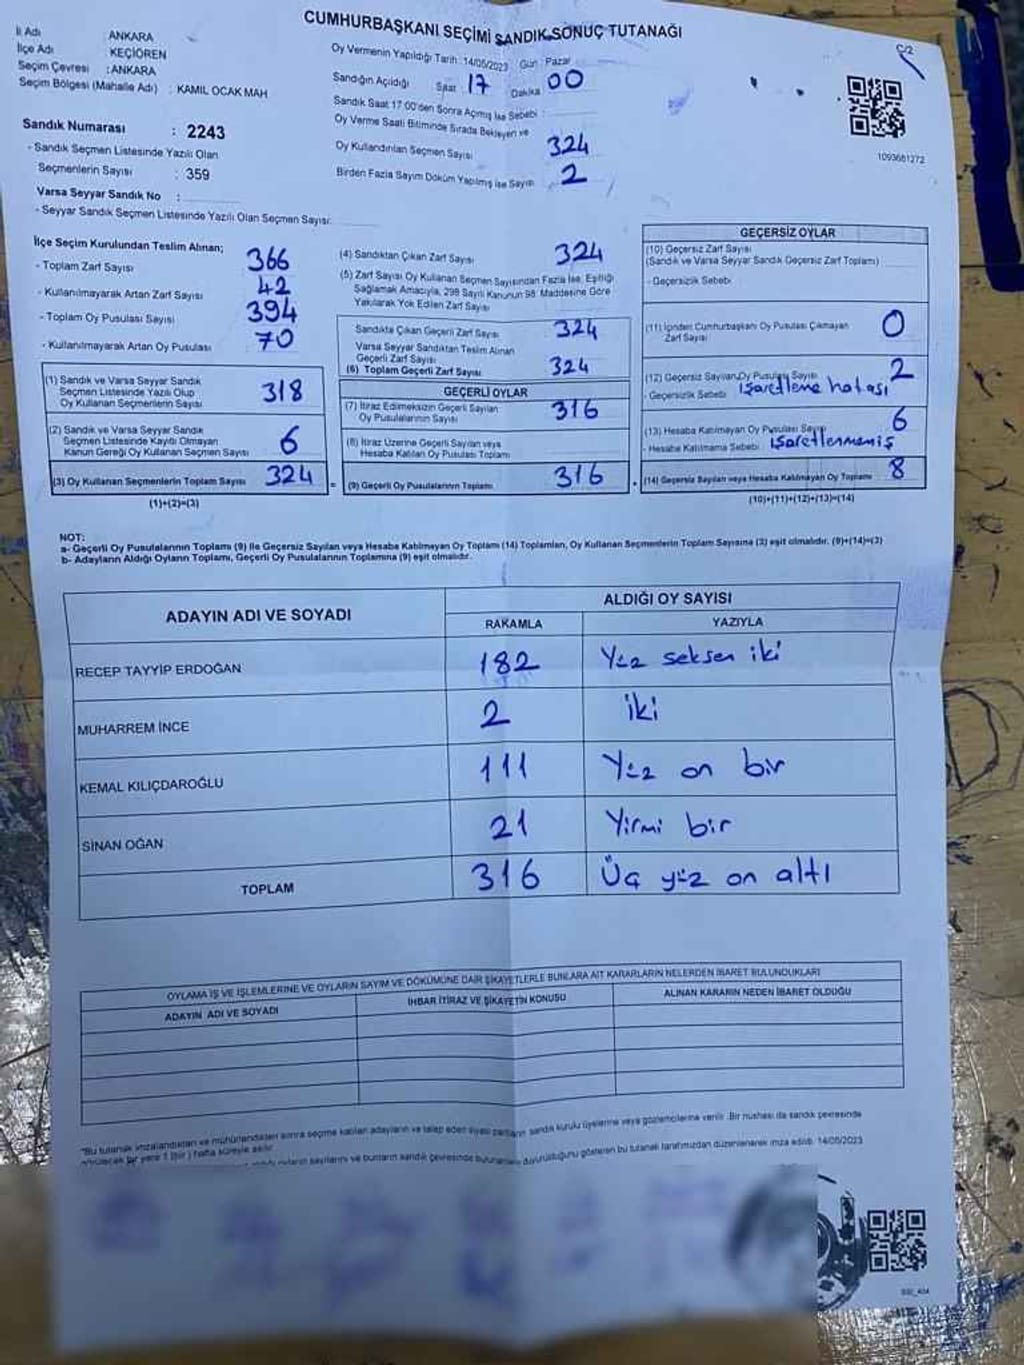 CUMHURBAŞKANI SEÇİMİ SANDIK SONUÇ TUTANAĞI
İl Adı : ANKARA
İlçe Adı : KEÇİÖREN
Seçim Çevresi : ANKARA
Seçim Bölgesi (Mahalle Adı) : KAMIL OCAK MAH
Sandık Numarası : 2243
- Sandık Seçmen Listesinde Yazılı Olan
Seçmenlerin Sayısı : 359
Varsa Seyyar Sandık No :
- Seyyar Sandık Seçmen Listesinde Yazılı Olan Seçmen Sayısı:
Oy Vermenin Yapıldığı Tarih : 14/05/2023 Gün : Pazar
Sandığın Açıldığı Saat 17 Dakika 00
Sandık Saat 17:00'den Sonra Açmış İse Sebebi :
Oy Verme Saati Bitiminde Sırada Bekleyen ve
Oy Kullandırılan Seçmen Sayısı 324
Birden Fazla Sayım Döküm Yapılmış İse Sayısı 2
C/2
1093681272
İlçe Seçim Kurulundan Teslim Alınan;
- Toplam Zarf Sayısı 366
- Kullanılmayarak Artan Zarf Sayısı 42
- Toplam Oy Pusulası Sayısı 394
- Kullanılmayarak Artan Oy Pusulası 70
(1) Sandık ve Varsa Seyyar Sandık
Seçmen Listesinde Yazılı Olup
Oy Kullanan Seçmenlerin Sayısı 318
(2) Sandık ve Varsa Seyyar Sandık
Seçmen Listesinde Kayıtlı Olmayan
Kanun Gereği Oy Kullanan Seçmen Sayısı 6
(3) Oy Kullanan Seçmenlerin Toplam Sayısı 324
(1)+(2)=(3)
(4) Sandıktan Çıkan Zarf Sayısı 324
(5) Zarf Sayısı Oy Kullanan Seçmen Sayısından Fazla İse, Eşitliği
Sağlamak Amacıyla, 298 Sayılı Kanunun 98. Maddesine Göre
Yakılarak Yok Edilen Zarf Sayısı
Sandıkta Çıkan Geçerli Zarf Sayısı 324
Varsa Seyyar Sandıktan Teslim Alınan
Geçerli Zarf Sayısı
(6) Toplam Geçerli Zarf Sayısı 324
GEÇERLİ OYLAR
(7) İtiraz Edilmeksizin Geçerli Sayılan
Oy Pusulalarının Sayısı 316
(8) İtiraz Üzerine Geçerli Sayılan veya
Hesaba Katılan Oy Pusulası Toplamı
= (9) Geçerli Oy Pusulalarının Toplamı 316
GEÇERSİZ OYLAR
(10) Geçersiz Zarf Sayısı
(Sandık ve Varsa Seyyar Sandık Geçersiz Zarf Toplamı)
- Geçersizlik Sebebi
(11) İçinden Cumhurbaşkanı Oy Pusulası Çıkmayan
Zarf Sayısı 0
(12) Geçersiz Sayılan Oy Pusulası Sayısı 2
- Geçersizlik Sebebi işaretleme hatası
(13) Hesaba Katılmayan Oy Pusulası Sayısı 6
- Hesaba Katılmama Sebebi işaretlenmemiş
(14) Geçersiz Sayılan veya Hesaba Katılmayan Oy Toplamı 8
(10)+(11)+(12)+(13)=(14)
NOT:
a- Geçerli Oy Pusulalarının Toplamı (9) ile Geçersiz Sayılan veya Hesaba Katılmayan Oy Toplamı (14) Toplamları, Oy Kullanan Seçmenlerin Toplam Sayısına (3) eşit olmalıdır. (9)+(14)=(3)
b- Adayların Aldığı Oyların Toplamı, Geçerli Oy Pusulalarının Toplamına (9) eşit olmalıdır.
ADAYIN ADI VE SOYADI ALDIĞI OY SAYISI
RAKAMLA YAZIYLA
RECEP TAYYİP ERDOĞAN 182 Yüz seksen iki
MUHARREM İNCE 2 iki
KEMAL KILIÇDAROĞLU 111 Yüz on bir
SİNAN OĞAN 21 Yirmi bir
TOPLAM 316 Üç yüz on altı
OYLAMA İŞ VE İŞLEMLERİNE VE OYLARIN SAYIM VE DÖKÜMÜNE DAİR ŞİKAYETLERLE BUNLARA AİT KARARLARIN NELERDEN İBARET BULUNDUKLARI
ADAYIN ADI VE SOYADI İHBAR İTİRAZ VE ŞİKAYETİN KONUSU ALINAN KARARIN NEDEN İBARET OLDUĞU
"Bu tutanak imzalandıktan ve mühürlendikten sonra seçime katılan adayların ve talep eden siyasi partilerin sandık kurulu üyelerine veya gözlemcilerine verilir. Bir nüshası da sandık çevresinde
görülecek bir yere 1 (bir) hafta süreyle asılır.
oyların sayılarını ve bunların sandık çevresinde duyurulduğunu gösteren bu tutanak tarafımızdan düzenlenerek imza edildi. 14/05/2023